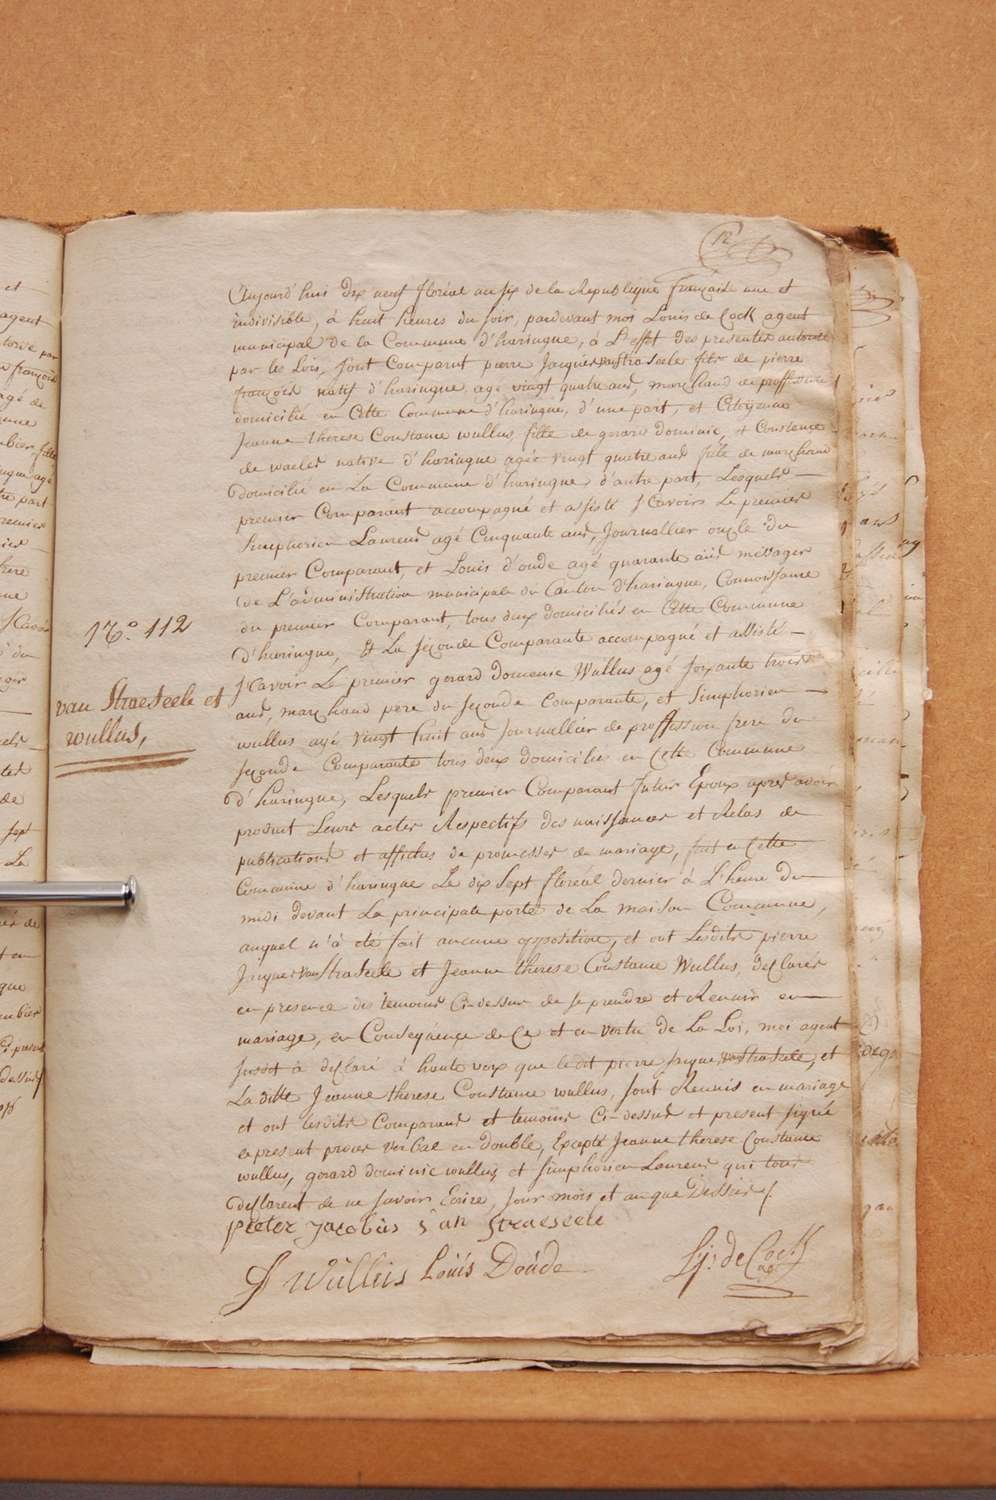 12
Aujourd'hui dix neuf floréal an six de la Republique française une et
indivisible, à huit heures du soir, pardevant moi Louis de Cock agent
municipal de la Commune d'haringue, à L'effet des presentes autorisé
par les Lois, sont Comparut pierre Jacques van Straseele fils de pierre
françois natif d'haringue agé vingt quatre ans, marchand de proffession
domicilié en Cette Commune d'haringue, d'une part, et Citoÿenne
Jeanne therese Constance wullus, fille de gerard dominic, et Constence
de waeles native d'haringue agée vingt quatre ans fille de marchand
domicilié en La Commune d'haringue, d'autre part, Lesquels
premier Comparant accompagné et assisté sçavoir Le premier
Simphorien Laurens agé Cinquante ans, Journallier oncle du
premier Comparant, et Louis d'oude agé quarante ans messager
de L'administration municipale du Canton d'haringue, Connoissance
du premier Comparant, tous deux domiciliés en Cette Commune
d'haringue, & La seçonde Comparante accompagné et assisté
sçavoir Le premier gerard domenic Wullus agé soixante trois
ans, marchand pere du seçonde Comparante, et Simphorien
wullus agé vingt huit ans Journallier de proffession frere du
seçonde Comparante tous deux domiciliés en Cette Commune
d'haringue, Lesquels premier Comparant futur Epoux apres avoir
produit Leurs actes Respectifs des naissances et Relas de
publications et affiches de promesses de mariage, fait en Cette
Commune d'haringue Le dix Sept floreal dernier à L'heure du
midi devant La principale porte de La maison Commune,
auquel n'à été fait aucune opposition, et ont Lesdits pierre
Jaques van Straseele et Jeanne therese Constance Wullus, declarés
en presence des temoins Ci-dessus de se prendre et Reunir en
mariage, en Conseqüence de Ce et en vertu de La Loi, moi agent
susdit à declaré à haute voix que ledit pierre Jaques van Straseele, et
La ditte Jeanne therese Constance wullus, sont Reunis en mariage
et ont lesdits Comparans et temoins Ci-dessus et present signé
le present proces verbal en double, Excepté Jeanne therese Constance
wullus, gerard dominic wullus, et Simphorien Laurens qui tous
declarent de ne savoir Ecrire, Jour mois et an que Dessus /.
pieter Jacobus Van Straeseele
S wulleis Louis Doude
L: j: de Cock
N.° 112
van Straeseele et
wullus,